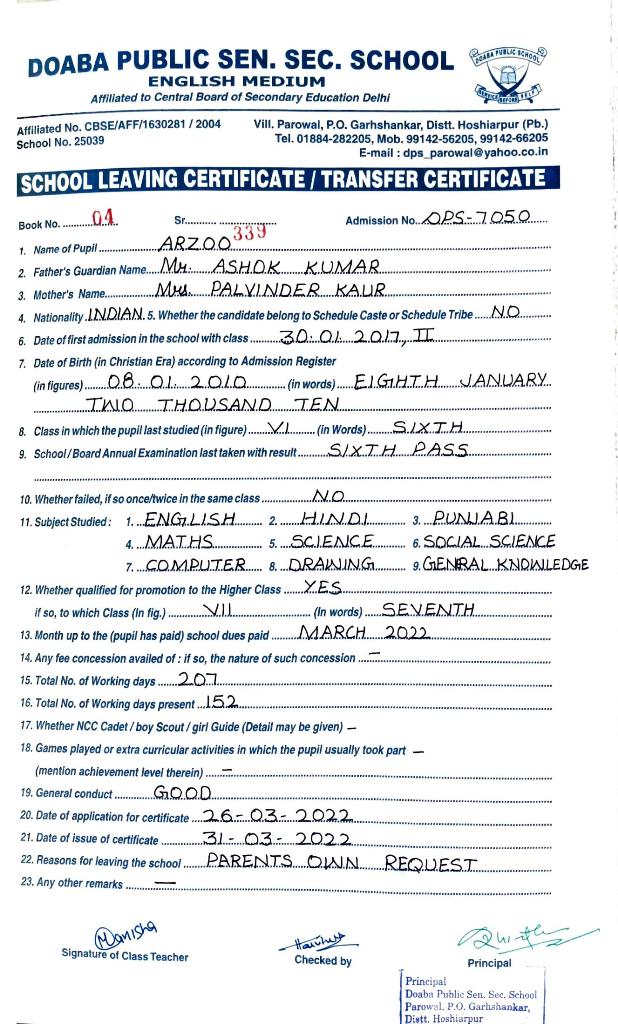 DOABA PUBLIC SEN. SEC. SCHOOL
ENGLISH MEDIUM
Affiliated to Central Board of Secondary Education Delhi
DOABA PUBLIC SCHOOL
SERVICE BEFORE SELF
Affiliated No. CBSE/AFF/1630281 / 2004
School No. 25039
Vill. Parowal, P.O. Garhshankar, Distt. Hoshiarpur (Pb.)
Tel. 01884-282205, Mob. 99142-56205, 99142-66205
E-mail : dps_parowal@yahoo.co.in
SCHOOL LEAVING CERTIFICATE / TRANSFER CERTIFICATE
Book No. 04 Sr. 339 Admission No. DPS-7050
1. Name of Pupil ARZOO
2. Father's Guardian Name Mr. ASHOK KUMAR
3. Mother's Name Mrs. PALVINDER KAUR
4. Nationality INDIAN 5. Whether the candidate belong to Schedule Caste or Schedule Tribe NO
6. Date of first admission in the school with class 30.01.2017, II
7. Date of Birth (in Christian Era) according to Admission Register
(in figures) 08.01.2010 (in words) EIGHTH JANUARY
TWO THOUSAND TEN
8. Class in which the pupil last studied (in figure) VI (in Words) SIXTH
9. School / Board Annual Examination last taken with result SIXTH PASS
10. Whether failed, if so once/twice in the same class NO
11. Subject Studied : 1. ENGLISH 2. HINDI 3. PUNJABI
4. MATHS 5. SCIENCE 6. SOCIAL SCIENCE
7. COMPUTER 8. DRAWING 9. GENERAL KNOWLEDGE
12. Whether qualified for promotion to the Higher Class YES
if so, to which Class (In fig.) VII (In words) SEVENTH
13. Month up to the (pupil has paid) school dues paid MARCH 2022
14. Any fee concession availed of : if so, the nature of such concession —
15. Total No. of Working days 207
16. Total No. of Working days present 152
17. Whether NCC Cadet / boy Scout / girl Guide (Detail may be given) —
18. Games played or extra curricular activities in which the pupil usually took part —
(mention achievement level therein) —
19. General conduct GOOD
20. Date of application for certificate 26-03-2022
21. Date of issue of certificate 31-03-2022
22. Reasons for leaving the school PARENTS OWN REQUEST
23. Any other remarks —
Manisha
Signature of Class Teacher
Checked by
Principal
Principal
Doaba Public Sen. Sec. School
Parowal, P.O. Garhshankar,
Distt. Hoshiarpur